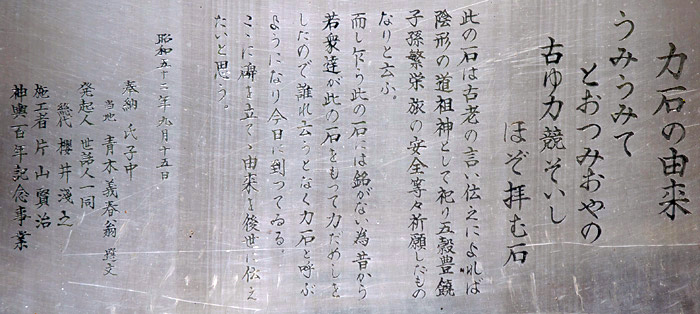 力石の由来
うみうみて
とおつみおやの
古ゆ力競そいし
ほぞ拝む石
此の石は古老の言い伝えによれば
陰形の道祖神として祀り五穀豊饒
子孫繁栄旅の安全等々祈願したもの
なりと云ふ。
而し乍ら此の石には銘がない為昔から
若衆達が此の石をもって力だめしを
したので誰れ云うとなく力石と呼ぶ
ようになり今日に到つてゐる、
ここに碑を立て、由来を後世に伝え
たいと思う。
昭和五十二年九月十五日
奉納 氏子中
当地 青木義春翁 撰文
発起人 世話人一同
総代 櫻井淺之
施工者 片山賢治
神輿百年記念事業